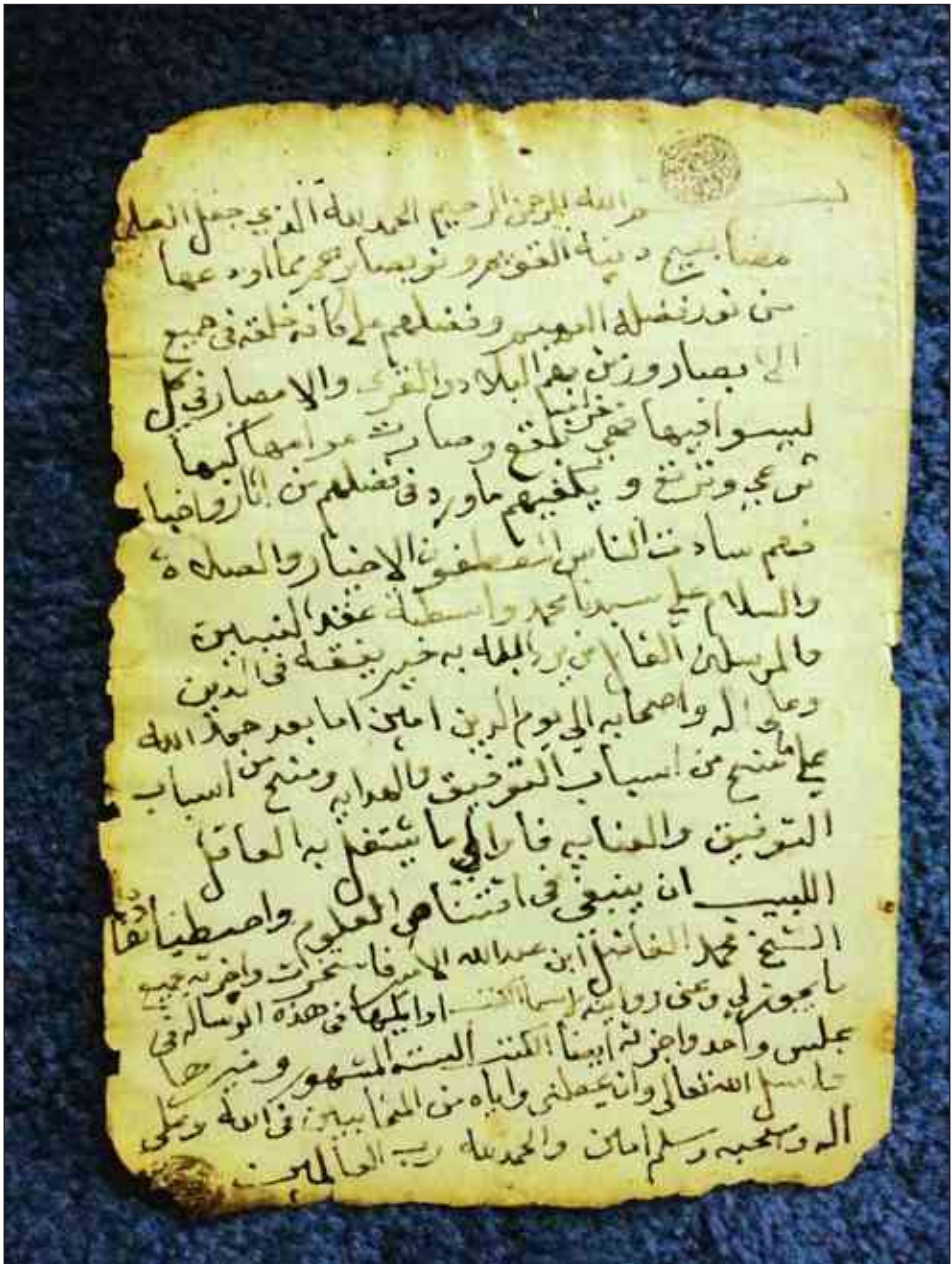 بسم الله الرحمن الرحيم الحمد لله الذي جعل العلم
مصابيح دينه القويم ونور بصايرهم بما اودعها
من نور فضله وفضلهم على كافة خلقه في جميع
الا بصار وزين بهم البلاد والقرى والامصار في كل
ليسوا فيها فهي وصارت
ترعى وترتع و يكفيهم ما ورد في فضلهم من اثار واخبا
فهم سادت الناس المصطفون الاخيار والصلاة
والسلام على سيدنا محمد واسطة عقد النبيين
والمرسلين القائل من يرد الله به خير يفقه في الدين
وعلى اله واصحابه الي يوم الدين امين اما بعد حمد الله
على ما منح من اسباب التوفيق والهدايه ومنح من اسباب
التوفيق والعنايه فاولي ما يشتغل به العاقل
اللبيب ان ينبغي في العلوم
الشيخ محمد الفاضل ابن عبد الله الامير فاستخرت واجزته بجميع
ما يجوز لي وعن روايته الكتب اوايلها في هذه الرساله في
مجلس واحد واجزته ايضا الكتب الستة المشهور وغيرها
فاسل الله تعالى وان يجعلني واياه من المتحابيين في الله وعلى
اله وصحبه وسلم امين والحمد لله رب العالمين